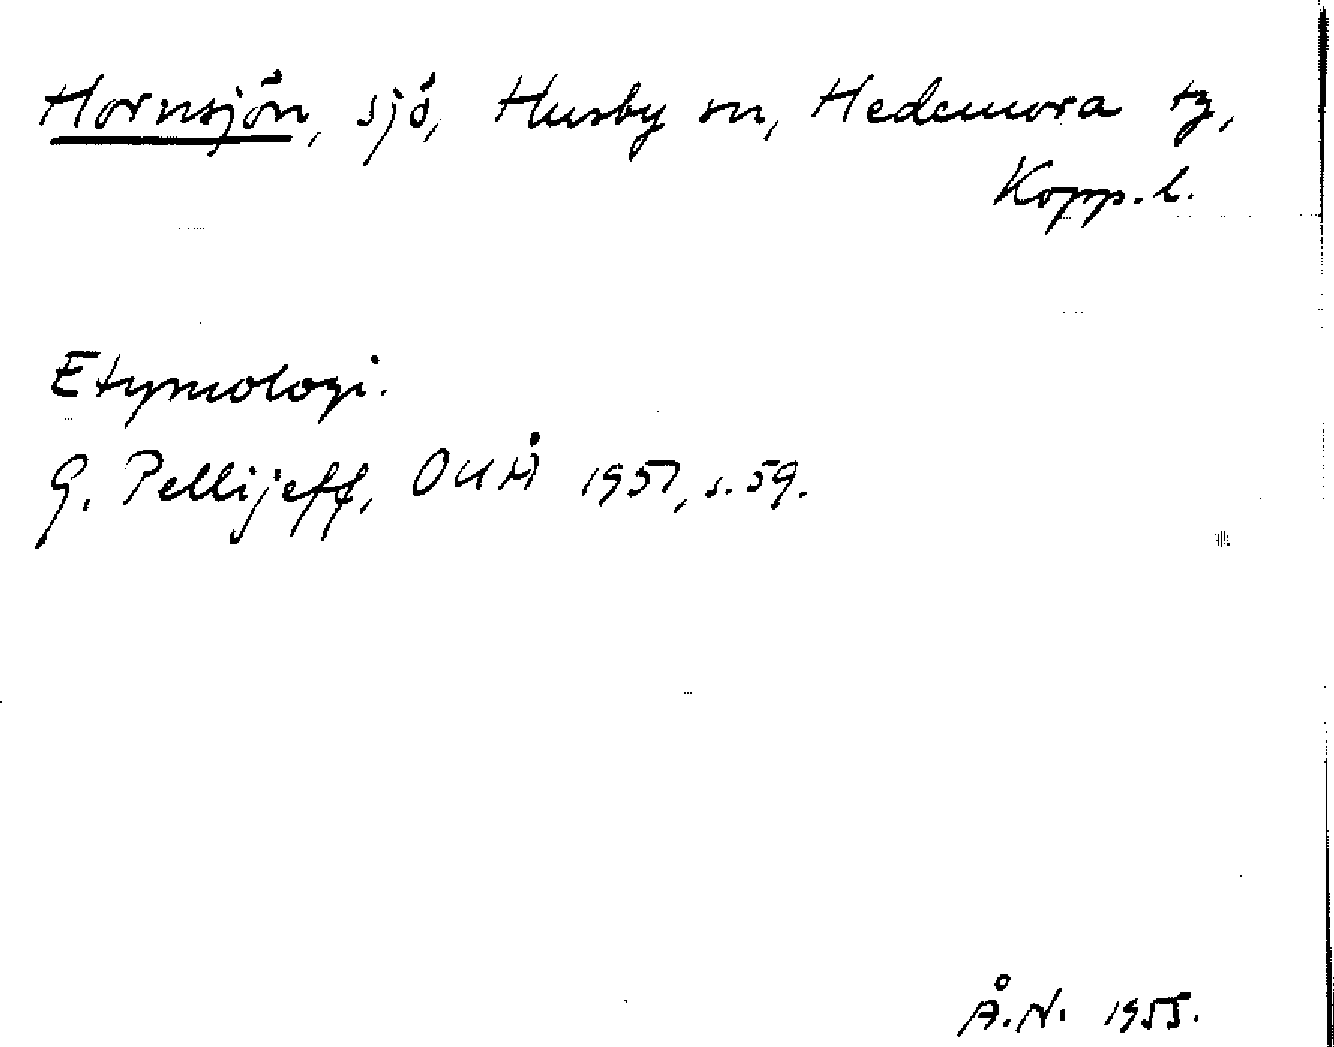 Hornsjön, sjö, Husby sn, Hedemora tg,
Kopp. l.
Etymologi.
G. Pellijeff, OUÅ 1951, s. 59.
Å.N. 1955.